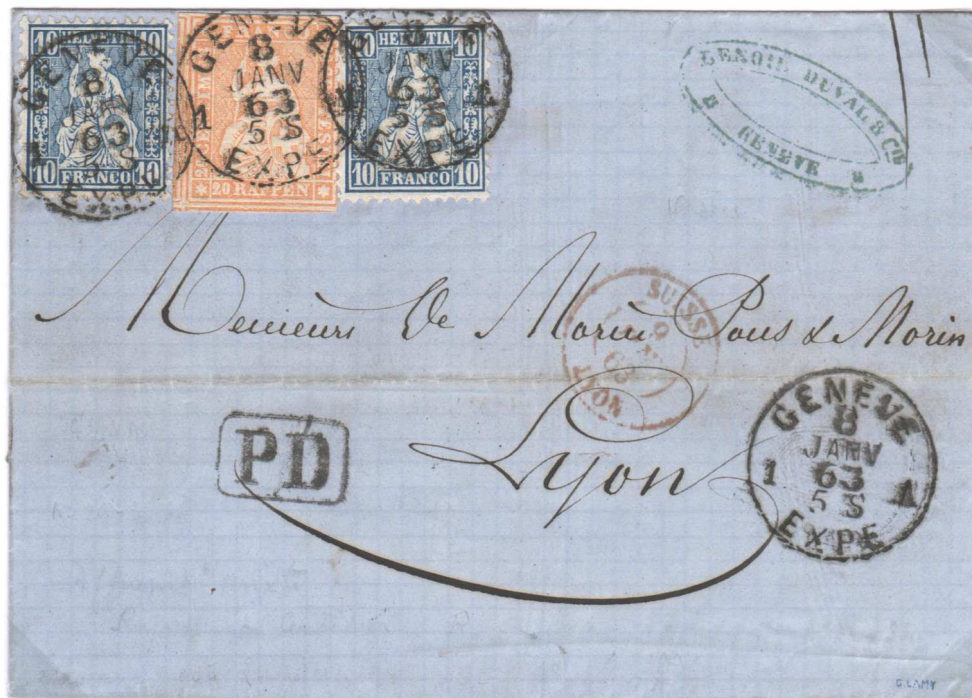 10 HELVETIA 10
10 FRANCO 10
GENÈVE
8
JANV
63
5 S
EXPE
20 RAPPEN
GENÈVE
1 8
JANV
63
5 S
EXPE
10 HELVETIA 10
10 FRANCO 10
8
JANV
63
5 S
EXPE
LENOIR DUVAL & Cie
GENEVE
Messieurs De Marin Pons & Morin
SUISSE
9
63
LYON
PD
Lyon
GENÈVE
8
JANV
1 63
5 S
EXPE
G. LAMY